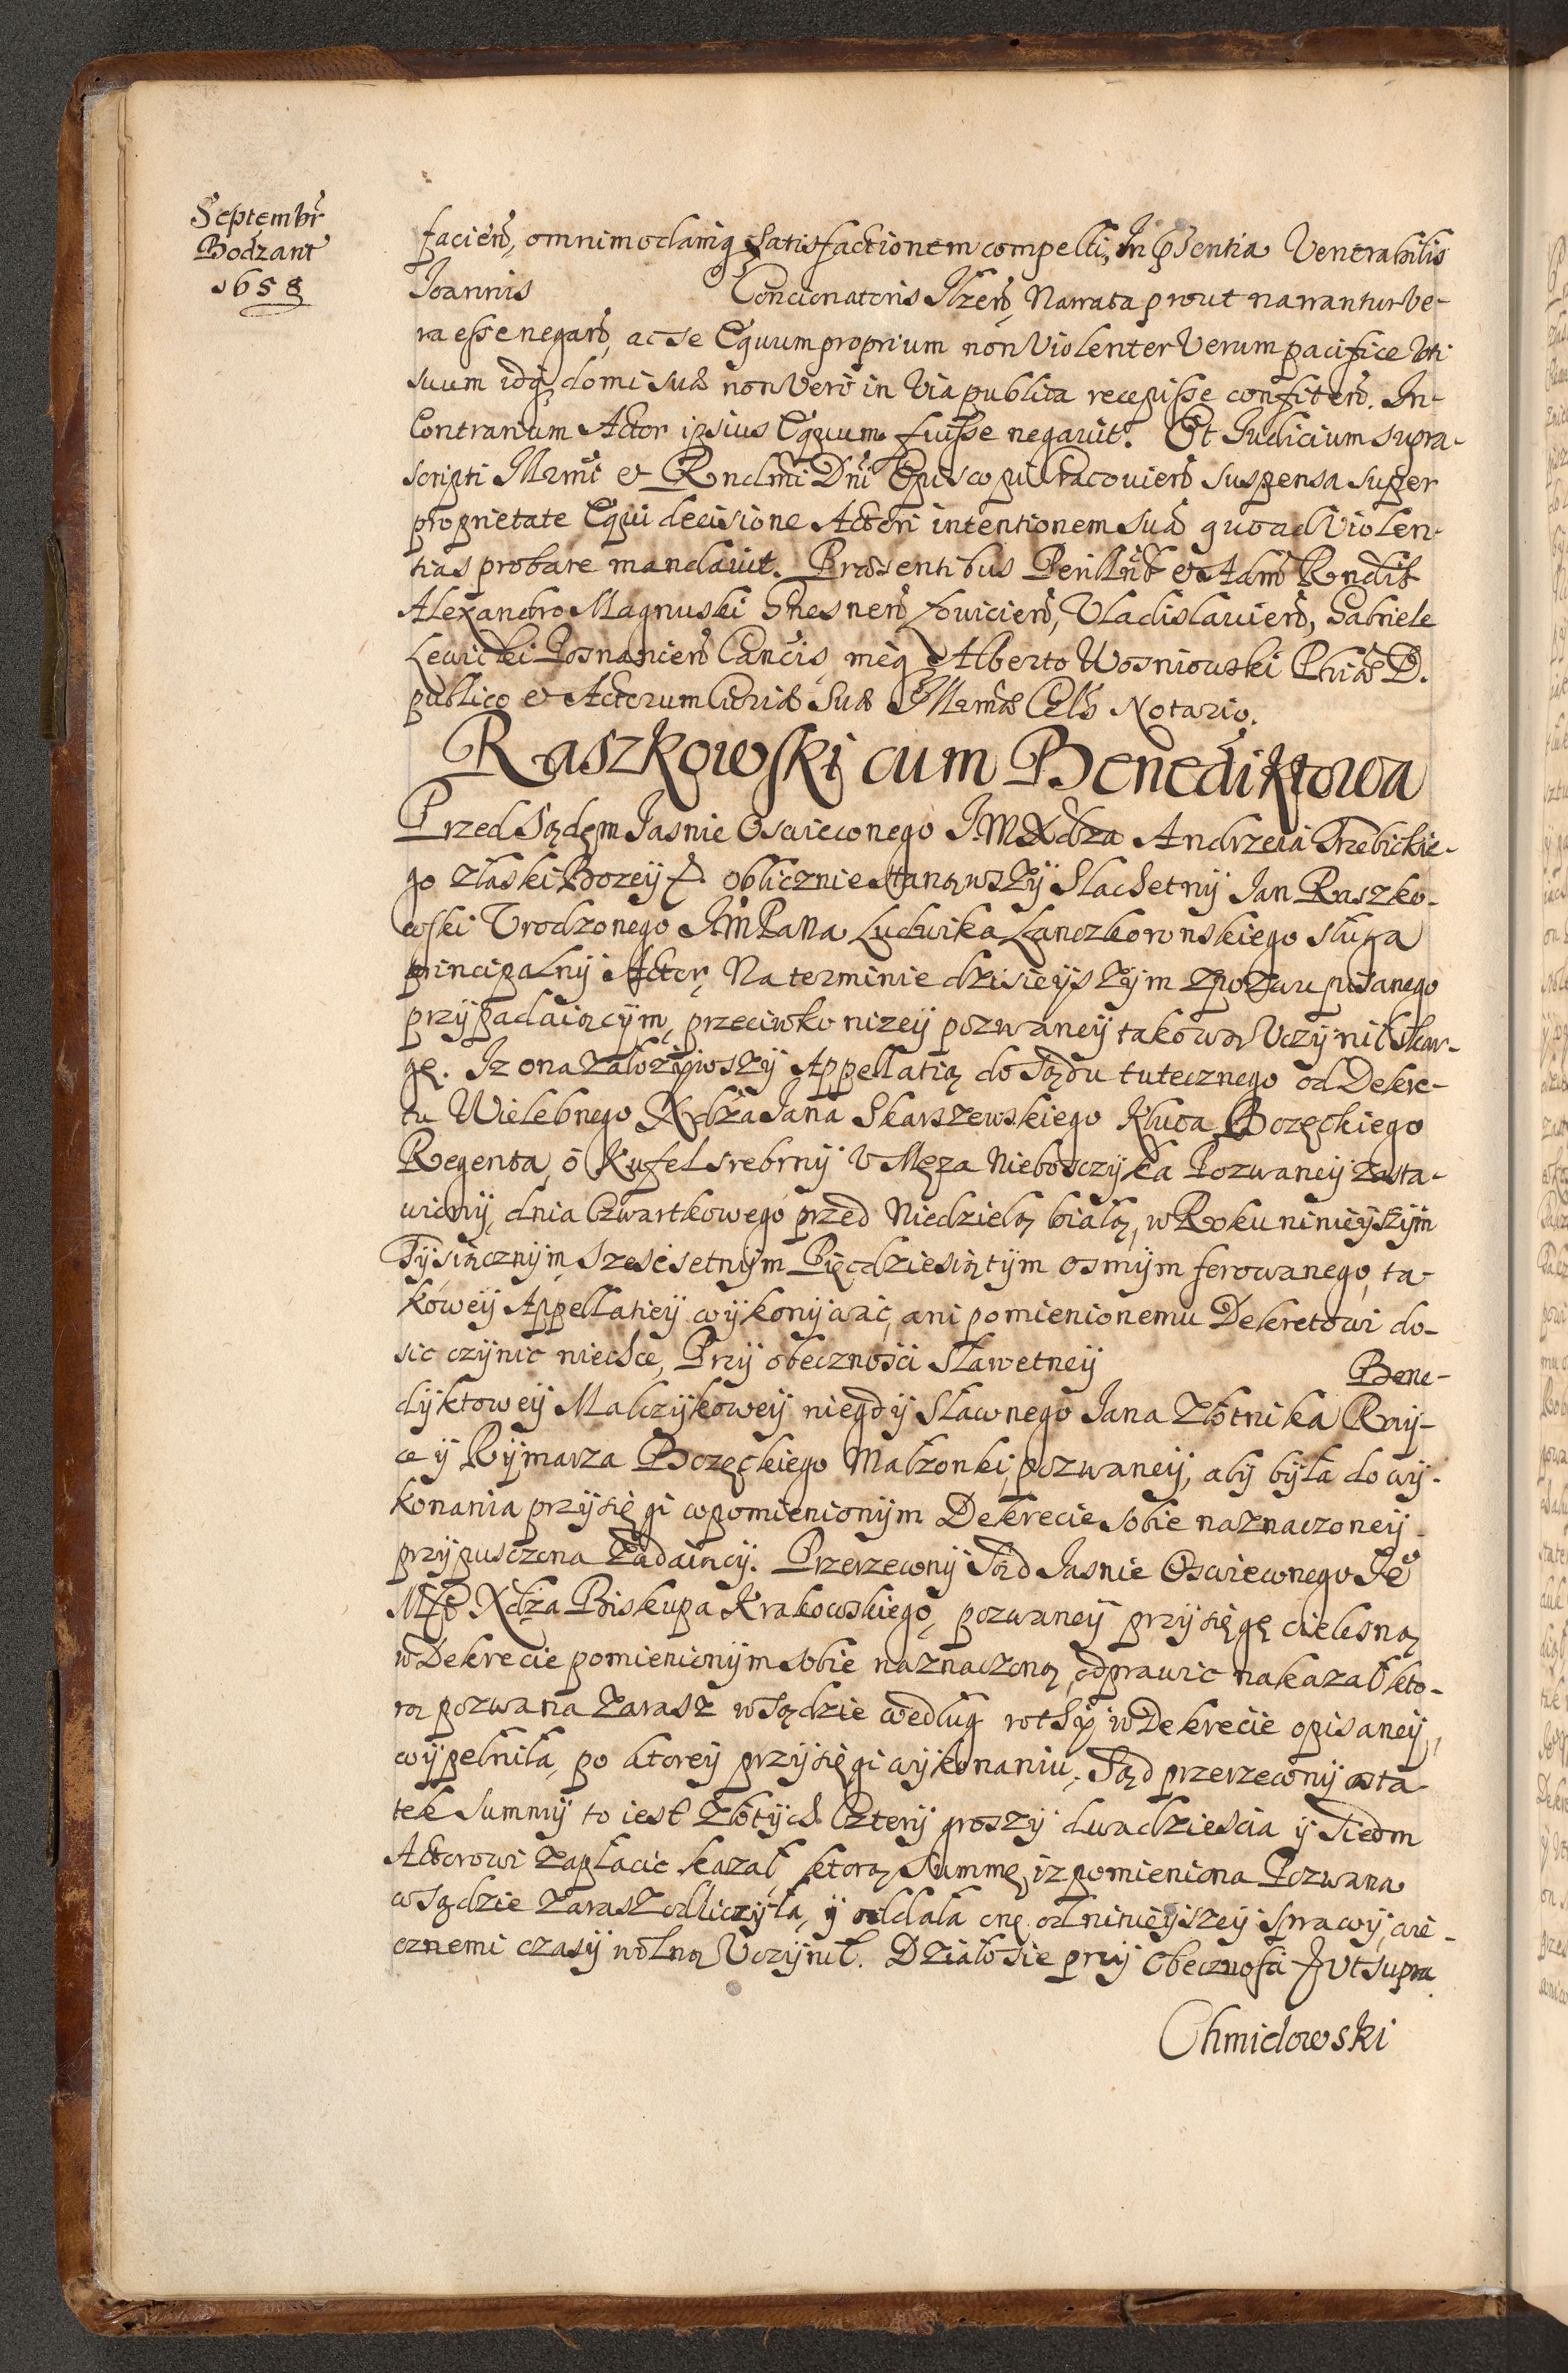 Septembr̃
Bodzant
1658
facieñ, omnimodamq̨ Satisfactionem compelli, In pñsentia Venerabilis
Joannis Concionatoris Ilzeñ, Narrata prout narrantur ve-
ra esse negañ, ac se Equum proprium non Violenter Verum pacifice Uti
suum idq̨ domi suæ non Vero in Via publica recepisse confiteñ. In-
Contrarium Actor ipsius Equum fuisse negavit. Et Judicium supra-
scripti Illmi et Rndmi Dni Episcopi Cracovieñ suspensa super
proprietate Equi decisione Actori intentionem suã quoad Violen-
tias probare mandavit. Præsentibus Perillrib et Adm Rndis
Alexandro Magnuski Gnesneñ Lovicieñ, Vladislavieñ, Gabriele
Lewicki Posnanieñ Cancis, meq̨ Alberto Wosniowski Phiæ D.
publico et Actorum Curiæ Suæ Illmæ Cels Notario.
Raszkowski cum Benediktowa
Przed Sądęm Jasnie Oswieconego J.M Xdza Andrzeia Trzebickie-
go z łaski Bozeÿ etc. obliczniе stanąwszÿ Slachetnÿ Jan Raszko-
wski Vrodzonego JmPana Ludwika Lanczkoronskiego sługa
principalnÿ Actor, Na terminie dzisieÿszÿm z pozwu pisanego
przÿpadaiącÿm, przeciwko nizeÿ pozwaneÿ takową Vczÿnił skar-
gę. Iz ona założÿwszÿ Appellatią do Sądu tutecznego od Dekre-
tu Wielebnego Xdza Jana Skarszewskiego Kluca Bozęckiego
Regenta, o Kufel srebrnÿ V Męza Nieboszczÿka Pozwaneÿ zasta-
wionÿ, dnia Czwartkowego przed Niedzielą białą, w Roku ninieÿszÿm
Tÿsiącznÿm Szescsetnÿm Pięcdziesiątÿm osmÿm ferowanego, ta-
koweÿ Appellatieÿ wÿkonÿwać, ani pomienionemu Dekretowi do-
sic czÿnic niechce, Przÿ obecznosci Sławetneÿ Bene-
dÿktoweÿ Malczÿkoweÿ niegdÿ Sławnego Jana Złotnika Raÿ-
ce ÿ Rÿmarza Bozęckiego Małzonki, pozwaneÿ, abÿ bÿła do wÿ-
konania przÿsięgi w pomienionÿm Dekrecie sobie naznaczoneÿ
przÿpusczona ządaiącÿ. Przerzeconÿ Sąd Jasnie Oswieconego Je°
Mći Xdza Biskupa Krakowskiego, pozwaneÿ przÿsięgę cielesną
w Dekrecie pomienionÿm sobie naznaczoną, odprawic nakazał kto-
rą pozwana zarasz w Sądzie według rothÿ w Dekrecie opisaneÿ,
wÿpełniła, po ktoreÿ przÿsięgi wÿkonaniu, Sąd przerzeconÿ osta
tek summÿ to iest złotÿch Czterÿ groszÿ dwadziescia ÿ siedm
Actorowi zapłacic kazał, ktorą summę, iz pomieniona Pozwana
w Sądzie zarasz odliczÿła, ÿ oddała onę od ninieÿszeÿ sprawÿ, wie-
cznemi czasÿ wolną Vczÿnił. Działo sie przÿ Obecznosci Jch Vt supra.
Chmielowski